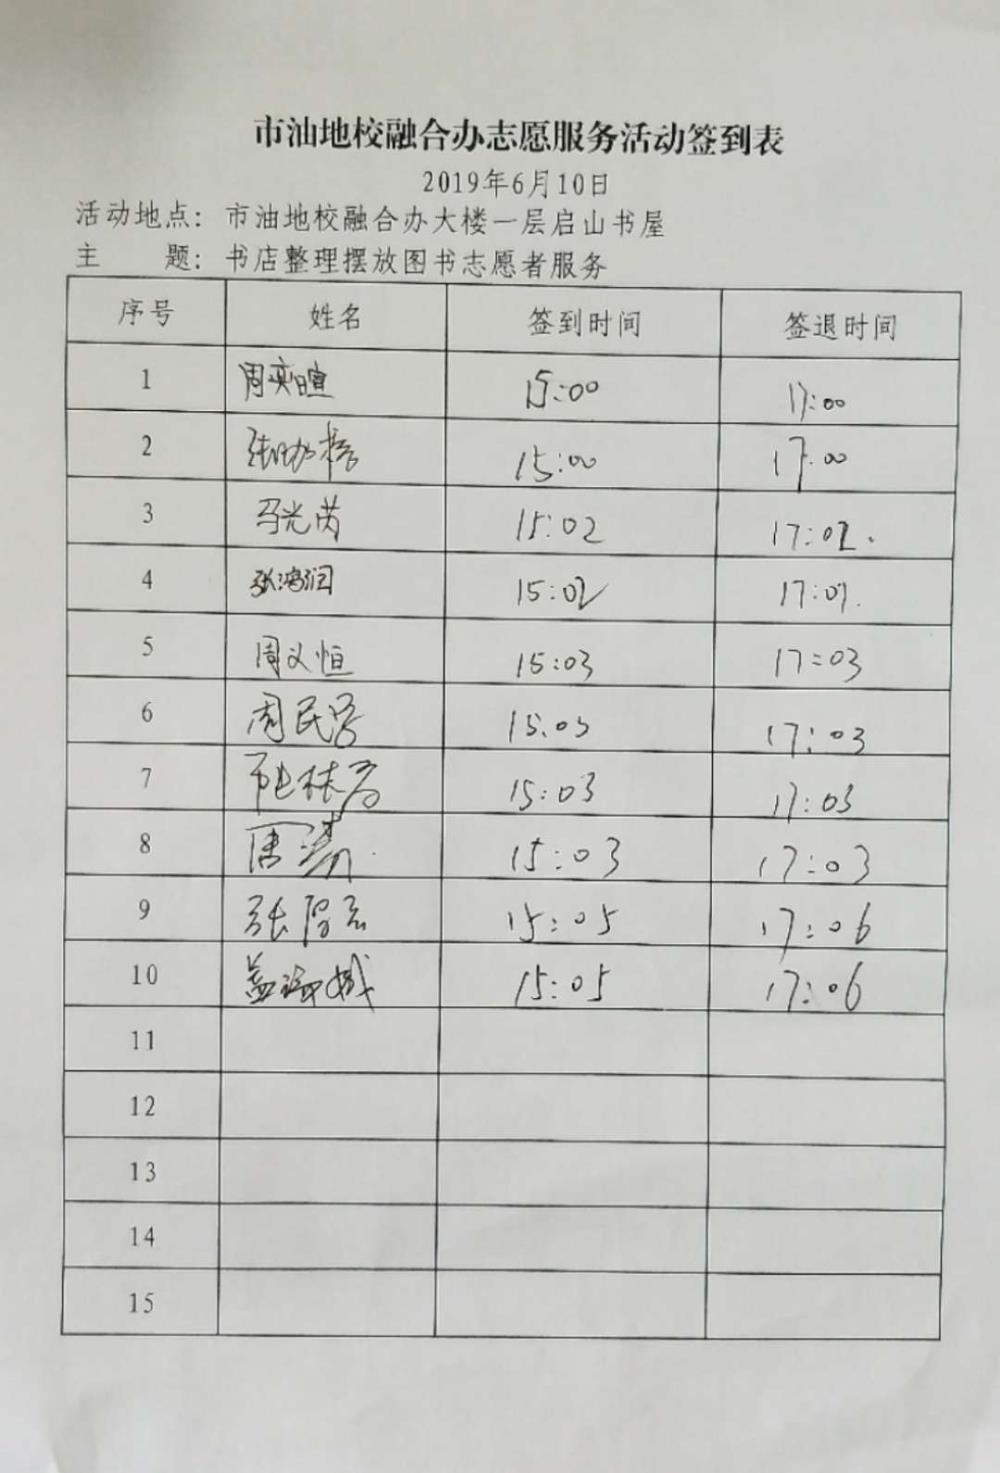 市油地校融合办志愿服务活动签到表
2019年6月10日
活动地点：市油地校融合办大楼一层启山书屋
主 题：书店整理摆放图书志愿者服务
序号 姓名 签到时间 签退时间
1 周奕暄 15:00 17:00
2 15:00 17:00
3 马光芮 15:02 17:02.
4 张鸿润 15:02
5 周义恒 15:03 17:03
6 周民 15:03 17:03
7 林 15:03 17:03
8 15:03 17:03
9 张 15:05 17:06
10 15:05 17:06
11
12
13
14
15